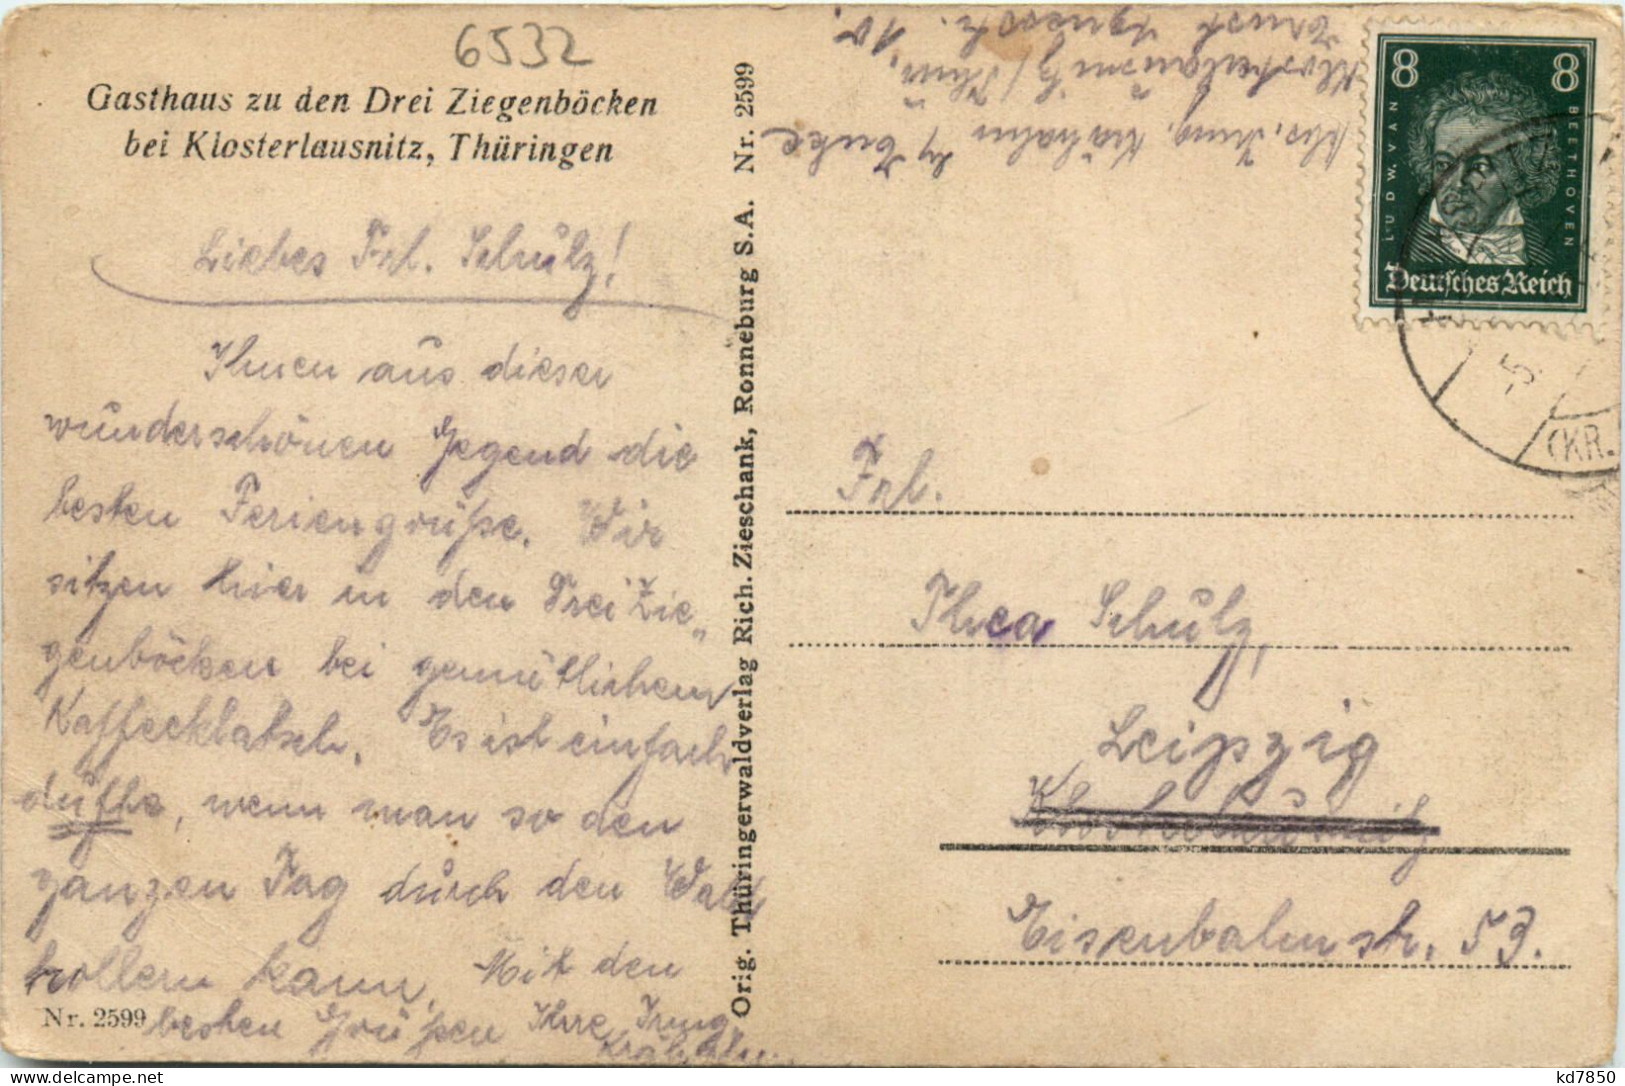 6532
Gasthaus zu den Drei Ziegenböcken
bei Klosterlausnitz, Thüringen
Liebes Frl. Schulz!
Ihnen aus dieser
wunderschönen Gegend die
besten Feriengrüße. Wir
sitzen hier in den Drei Zie„
genböcken bei gemütlichem
Kaffeeklatsch. Es ist einfach
dufte, wenn man so den
ganzen Tag durch den Wald
trollern kann. Mit den
besten Grüßen Ihre Irmg.
Nr. 2599
Orig. Thüringerwaldverlag Rich. Zieschank, Ronneburg S.A. Nr. 2599
Abs. Irmg.
Klosterlausnitz / Thür.
Ernst 10
8 8
LUDW. VAN BEETHOVEN
Deutsches Reich
-5.
(KR.
Frl.
Thea Schulz,
Leipzig
Klosterlausnitz
Eisenbahnstr. 53.
kd7850